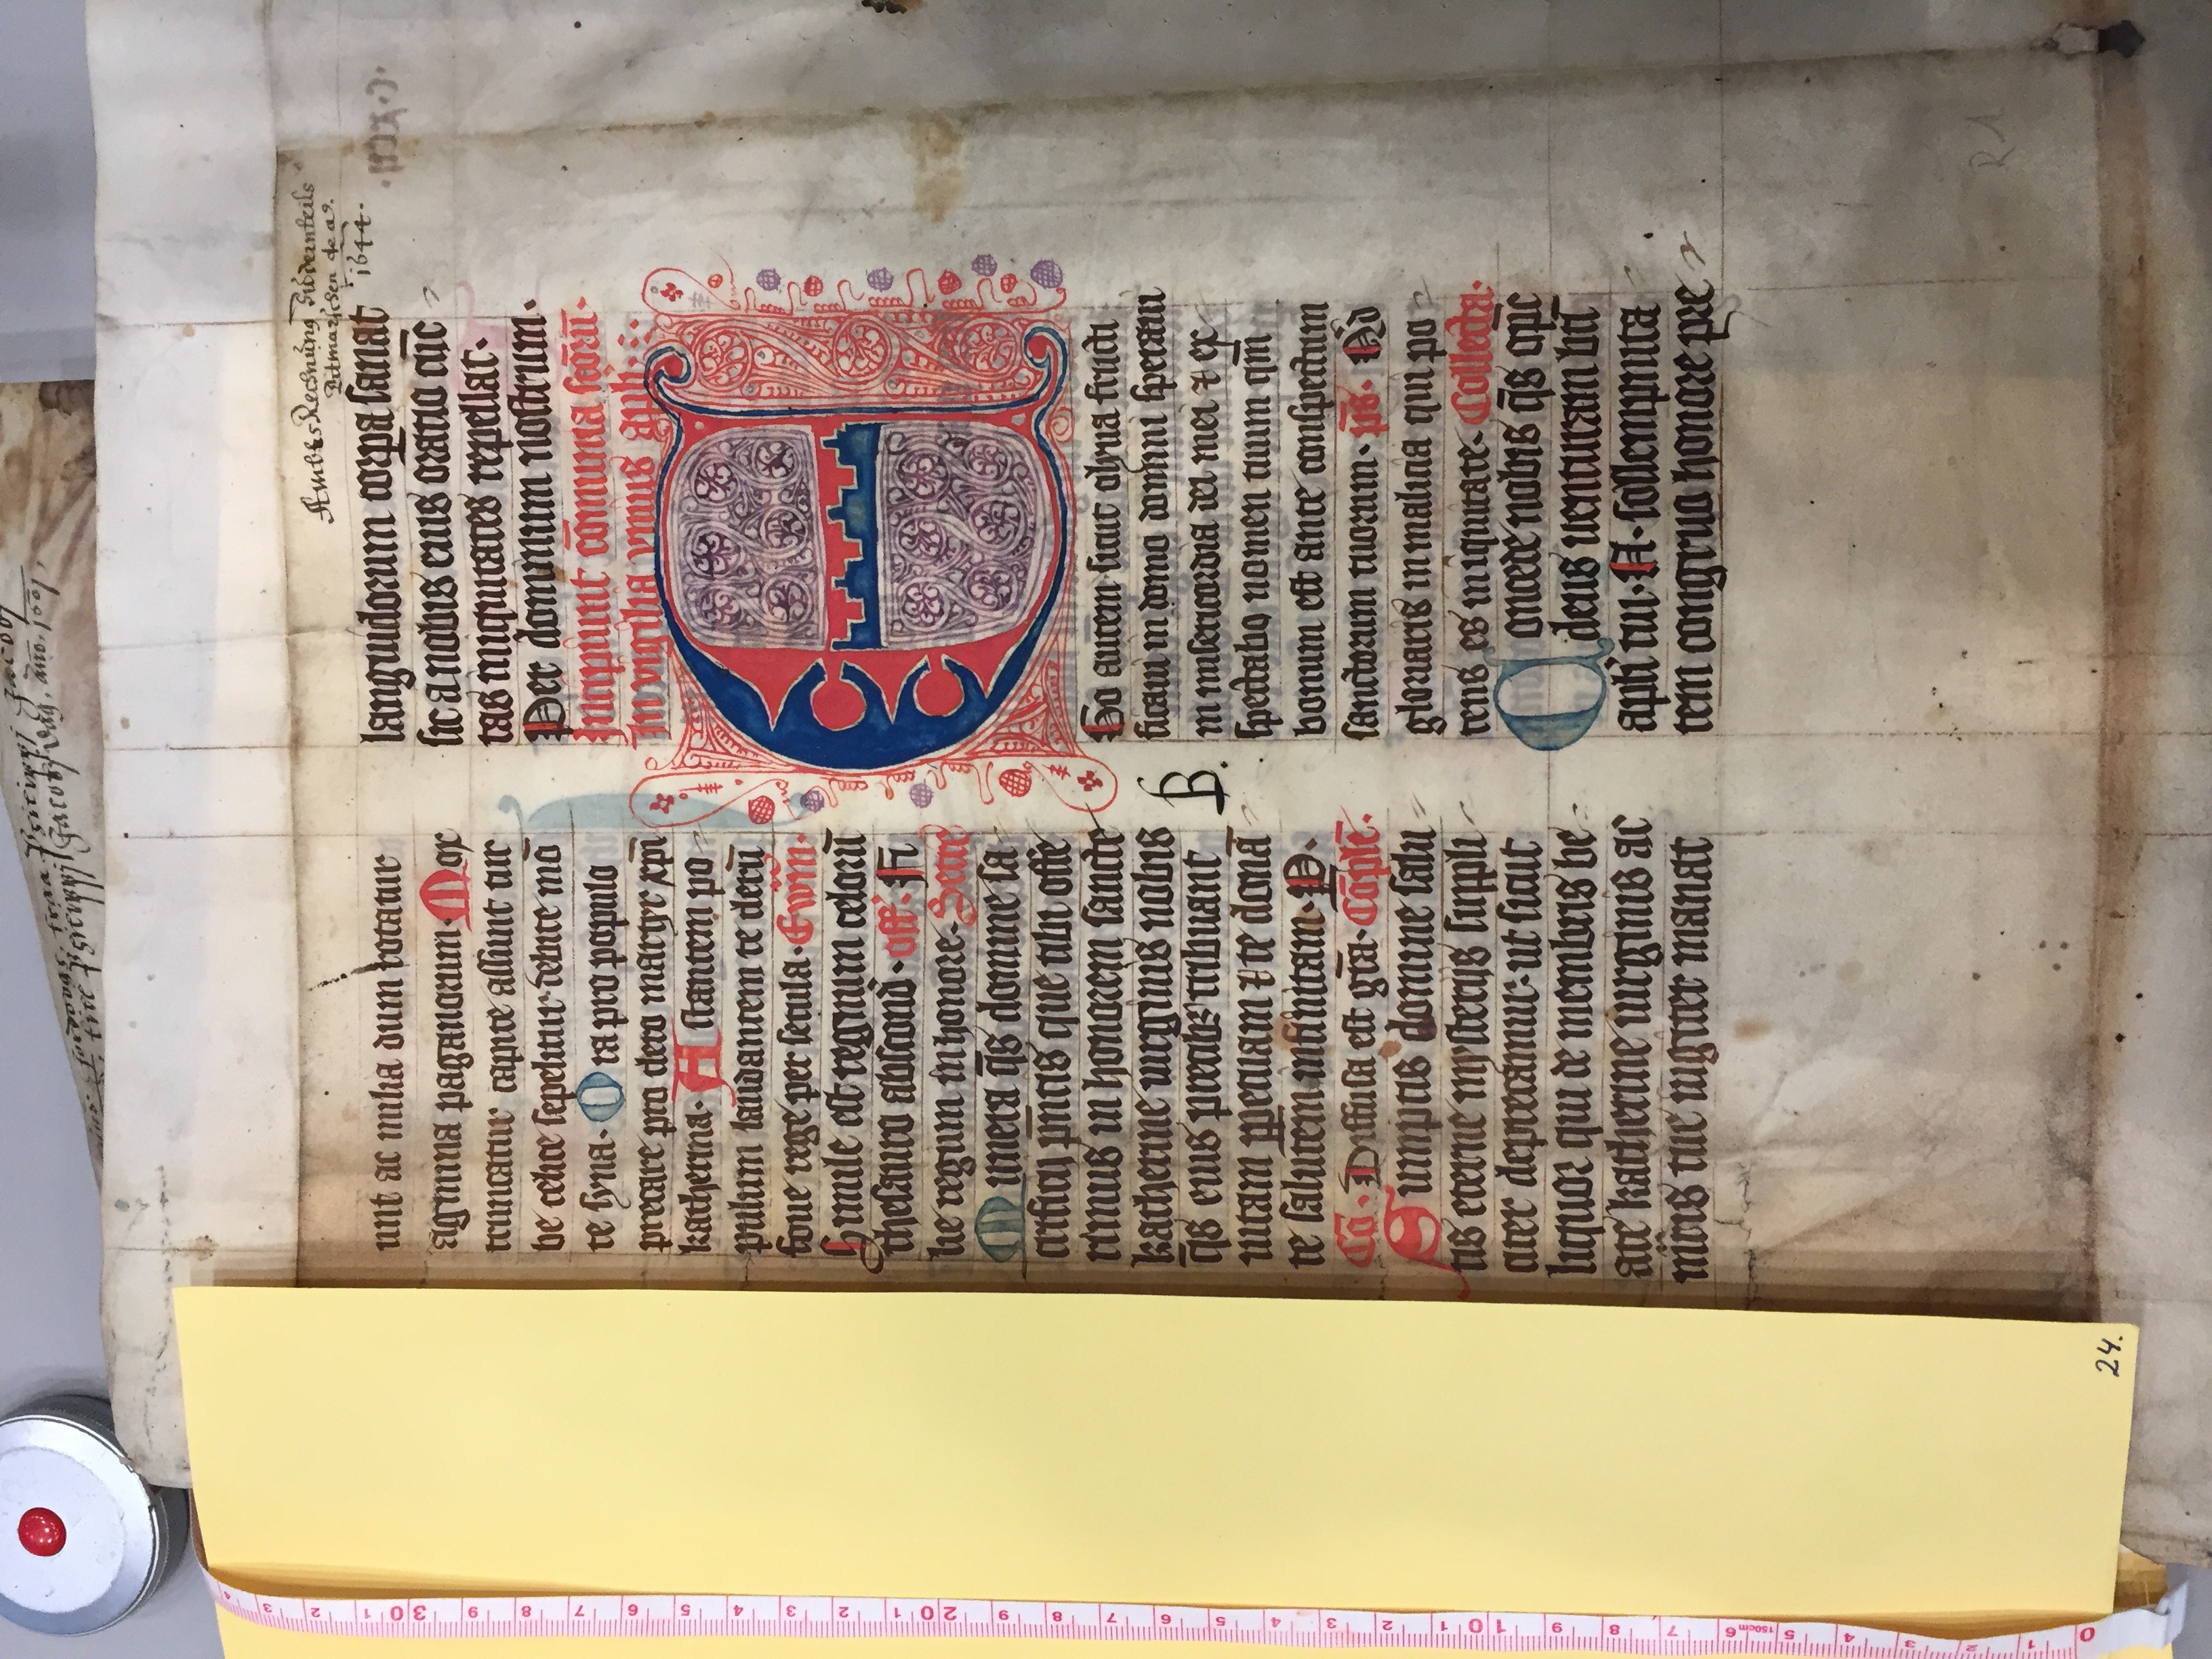 fordoogs, fraa Philippj Jacobj
till Philippj Jacobj dag, año, 1601,
Ambts Rechnung Südernteils
Ditmarschen de aº.
1644.
C·XCII·
unt ac milia dum rotatur
agmina paganorum· Mox
truncatur capite assunt tur
be celice sepelitur debite mō
te syna· Ora pro populo
precare pro clero martyr xp̄i
katherina· Astantem po
pulum laudantem te clerū
foue rege per secula· Ewm̄·
Simile est regnum celorū
thesauro abscond̄· off'· Fi
lie regum in honore· Secre
Munera q̄s domine sa
crificij p̄ntis que tibi offe
rimus in honorem sancte
katherine uirginis nobis
q̄s eius precibꝫ tribuant
uitam ꝑpetuam ⁊ te donā
te salutem infinitam· P·
Cō· Diffusa est gr̄a· Cōplē·
Sumptis domine salu
tis eterne mysterijs suppli
citer deprecamur· ut sicut
liquor qui de membris be
ate katherine uirginis ac
mr̄tis tue iugiter manat
languidorum corꝑa sanat
sic a nobis eius oratio cūc
tas iniquitates repellat·
Per dominum nostrum·
Incipiunt cōmunia sc̄orū·
In vigilia vnius apl'i·
Ego autem sicut oliua fructi
ficaui in domo domini speraui
B.
in misericordia dei mei ⁊ ex
spectabo nomen tuum qm̄
bonum est ante conspectum
sanctorum tuorum· ps̄· Qⁱd
gloriaris in malicia qui po
tens es iniquitate· Collecta·
Concede nobis q̄s op̄c
deus uenturam bt̄i
apl'i tui· N· sollempnita
tem congruo honore pre
R 1
24.